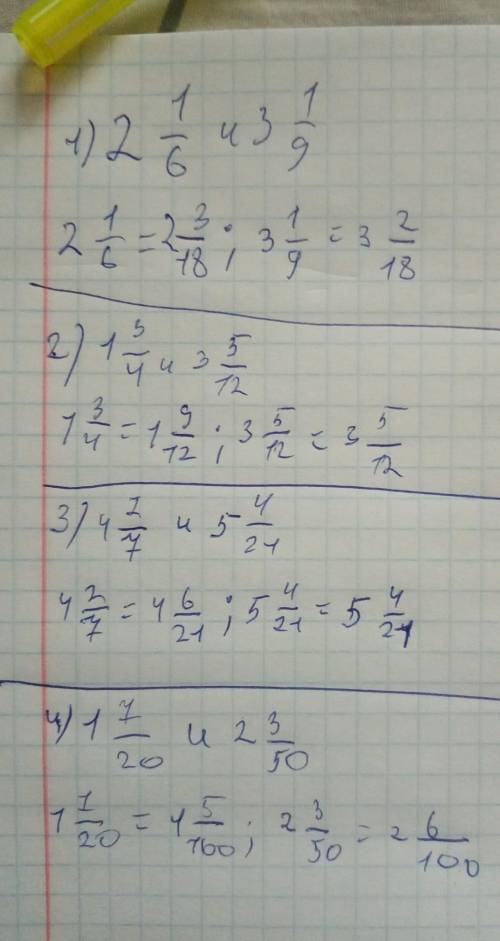 1) 2 1/6 и 3 1/9
2 1/6 = 2 3/18 ; 3 1/9 = 3 2/18
2) 1 3/4 и 3 5/12
1 3/4 = 1 9/12 ; 3 5/12 = 3 5/12
3) 4 2/7 и 5 4/21
4 2/7 = 4 6/21 ; 5 4/21 = 5 4/21
4) 1 1/20 и 2 3/50
1 1/20 = 1 5/100 ; 2 3/50 = 2 6/100